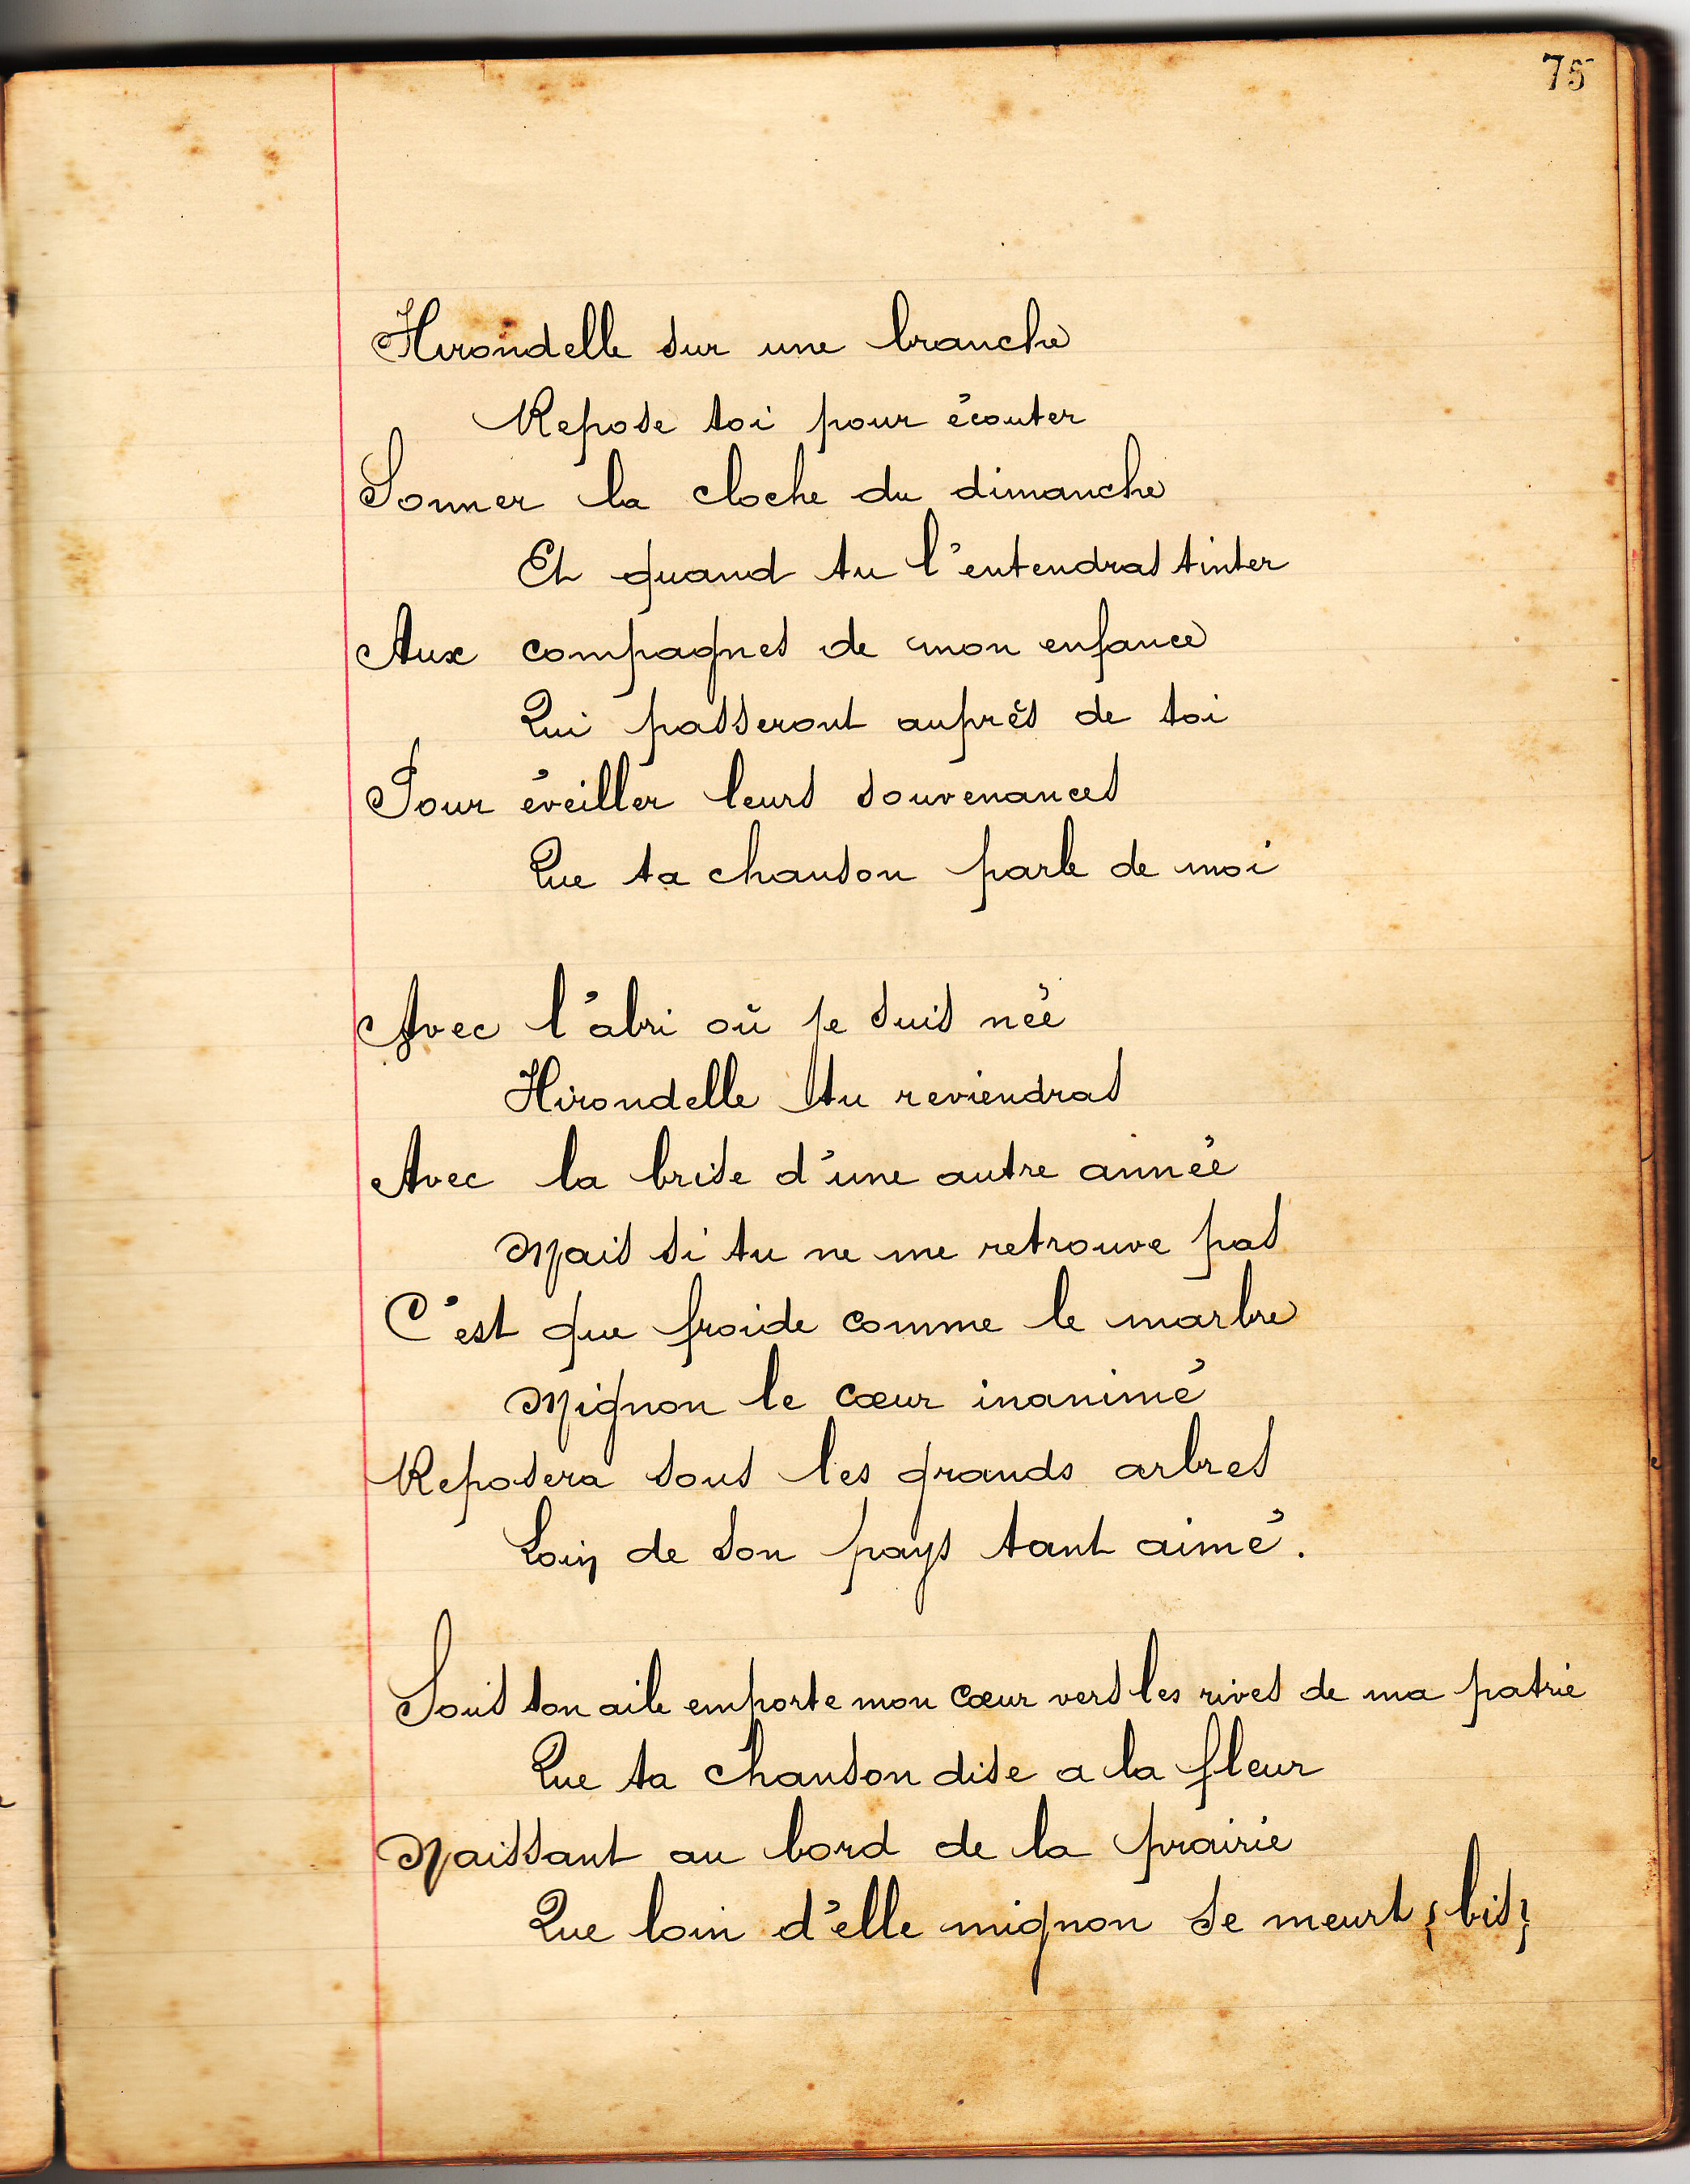 75
Hirondelle sur une branche
Repose toi pour écouter
Sonner la cloche du dimanche
Et quand tu l'entendras tinter
Aux compagnes de mon enfance
Qui passeront auprès de toi
Pour éveiller leurs souvenances
Que ta chanson parle de moi
Avec l'abri où je suis née
Hirondelle tu reviendras
Avec la brise d'une autre année
Mais si tu ne me retrouve pas
C'est que froide comme le marbre
Mignon le cœur inanimé
Reposera sous les grands arbres
Loin de son pays tant aimé.
Sous ton aile emporte mon cœur vers les rives de ma patrie
Que ta chanson dise a la fleur
Naissant au bord de la prairie
Que loin d'elle mignon se meurt {bis}